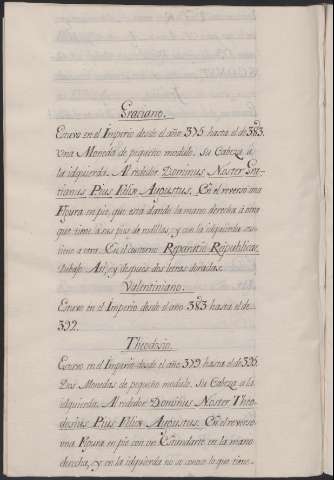 Graciano.
Estuvo en el Imperio desde el año 375 hasta el de 383.
Una Moneda de pequeño modulo. Su Cabeza á
la izquierda. Al rededor Dominus Noster Gra-
tianus Pius Felix Augustus. En el reverso una
Figura en pie, que está dando la mano derecha á otra
que tiene á sus pies de rodillas, y con la izquierda sos-
tiene á otra. En el contorno Reparatio Republicae.
Debajo Art, y despues dos letras
Valentiniano.
Estuvo en el Imperio desde el año 383 hasta el de
392.
Theodosio.
Estuvo en el Imperio desde el año 379 hasta el de 395.
Dos Monedas de pequeño modulo. Su Cabeza a la
izquierda. Al rededor Dominus Noster Theo-
dosius Pius Felix Augustus. En el reverso
una Figura en pie con un Estandarte en la mano
derecha, y en la izquierda no se conoce lo que tiene.